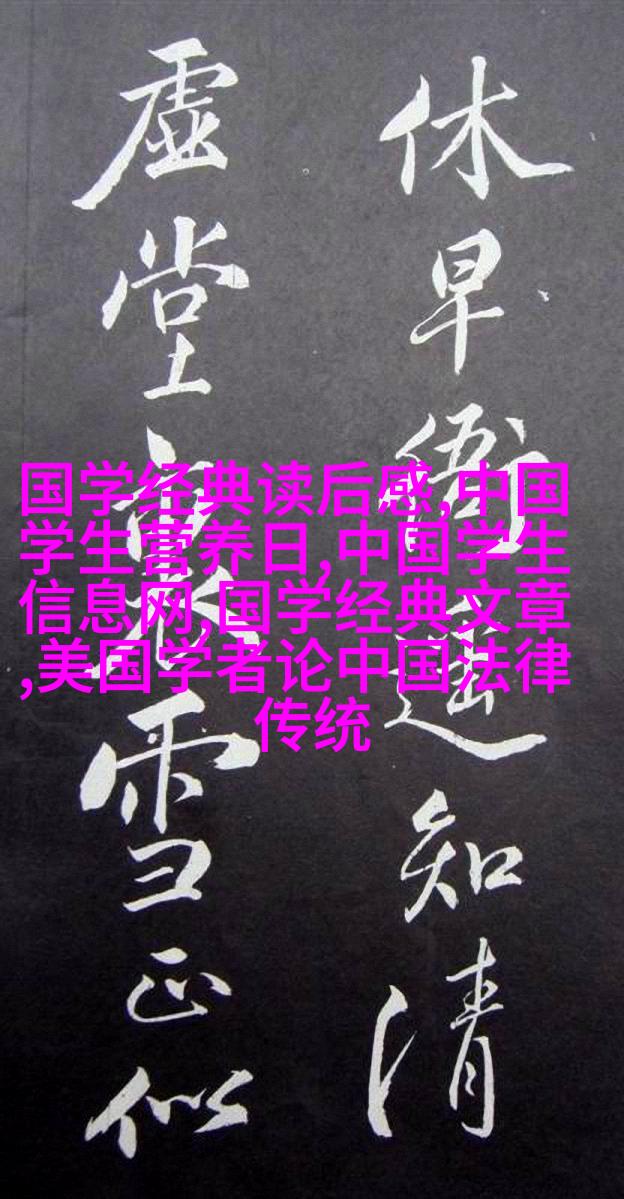 休早衙遥知清
虚堂雪正似
国学经典读后感,中国
学生营养日,中国学生
信息网,国学经典文章
,美国学者论中国法律
传统